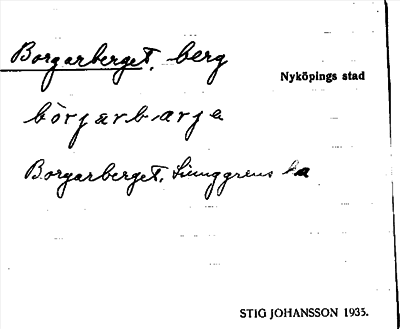 Borgarberget, berg
Nyköpings stad
bòrjarbarje
Borgarberget. Ljunggrens ka
STIG JOHANSSON 1935.